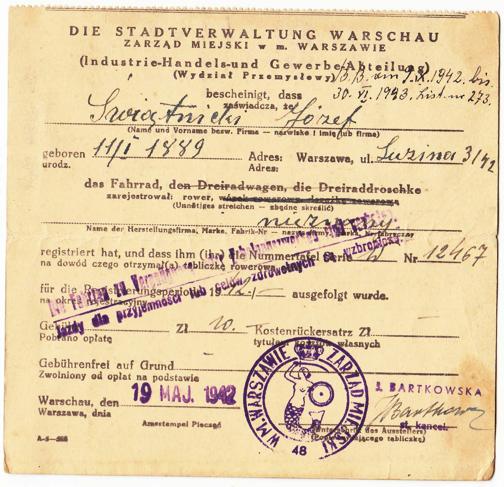 DIE STADTVERWALTUNG WARSCHAU
ZARZĄD MIEJSKI w m. WARSZAWIE
(Industrie-Handels-und Gewerbe-Abteilung)
(Wydział Przemysłowy)
9.X.1942. bis
bescheinigt, dass
zaświadcza, że
30. VI. 1943. list. nr 273.
Świątnicki Józef
(Name und Vorname bezw. Firma — nazwisko i imię lub firma)
geboren 11/I 1889 Adres: Warszawa, ul. Luzina 3/42
urodz. Adres:
das Fahrrad, den Dreiradwagen, die Dreiraddroschke
zarejestrował: rower, wózek rowerowy, dorożkę rowerową
(Unnötiges streichen — zbędne skreślić)
nieznany
Name der Herstellungsfirma, Marke, Fabrik-Nr
registriert hat, und dass ihm (ihr) die Nummertafel W Nr 12467
na dowód czego otrzymał(a) tabliczkę rowerową
für die Registrierungsperiode 1942 ausgefolgt wurde.
na okres rejestracyjny
jazdy dla przyjemności lub celów zdrowotnych są wzbronione.
Gebühr Zł 10.- Kostenrückersatz Zł
Pobrano opłatę tytułem kosztów własnych
Gebührenfrei auf Grund
Zwolniony od opłat na podstawie
Warschau, den 19 MAJ. 1942
Warszawa, dnia
Amtsstempel Pieczęć
W M. WARSZAWIE ZARZĄD MIEJSKI
48
J. BARTKOWSKA
Bartkowska
st. kancel.
(Unterschrift des Ausstellers)
(Podpis wydającego tabliczkę)